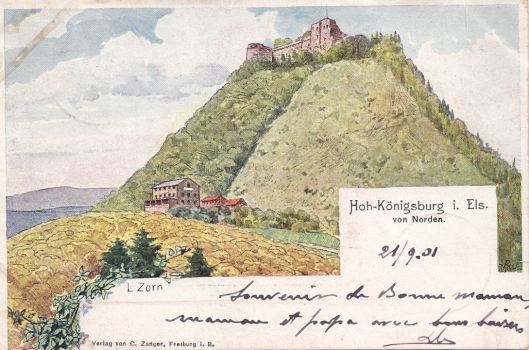 Hoh-Königsburg i. Els.
von Norden.
21/9.01
L. Zorn
Souvenir de Bonne maman,
maman et papa avec bons baisers
Verlag von C. Zanger, Freiburg i. B.